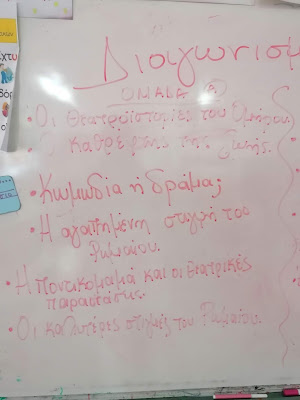 Διαγωνισμ
ΟΜΑΔΑ Α
• Οι Θεατροϊστορίες του Ομήρου.
• Ο καθρέφτης της ζωής.
• Κωμωδία ή δράμα;
• Η αγαπημένη στιγμή του
Ρωμαίου.
• Η Ποντικομαμά και οι θεατρικές
παραστάσεις.
• Οι καλύτερες στιγμές του Ρωμαίου.